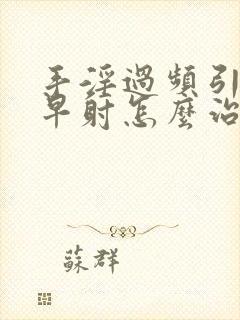 手淫過頻引
早射怎麼治
蘇群